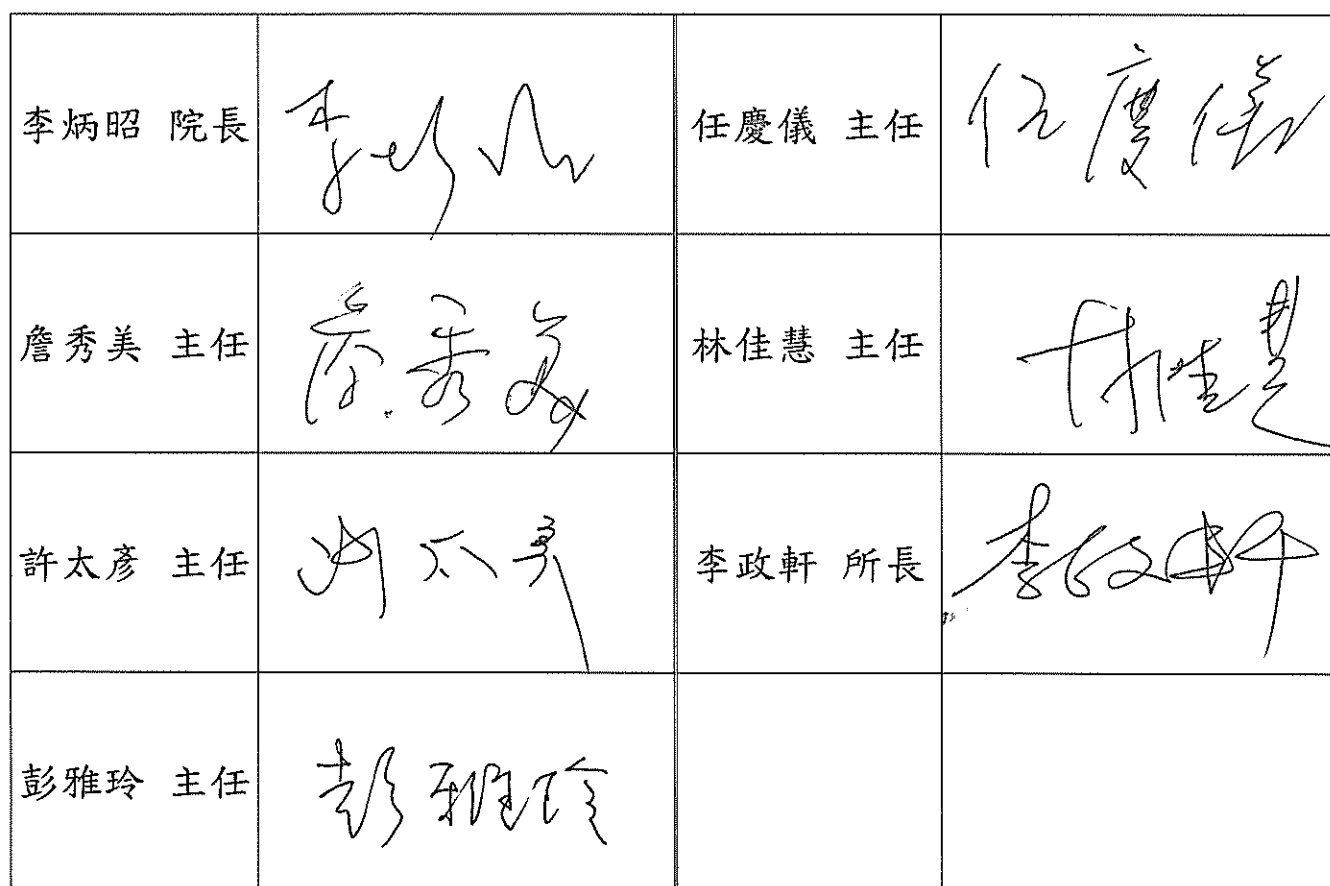 李炳昭 院長 李炳昭 任慶儀 主任 任慶儀
詹秀美 主任 詹秀美 林佳慧 主任 林佳慧
許太彥 主任 許太彥 李政軒 所長 李政軒
彭雅玲 主任 彭雅玲